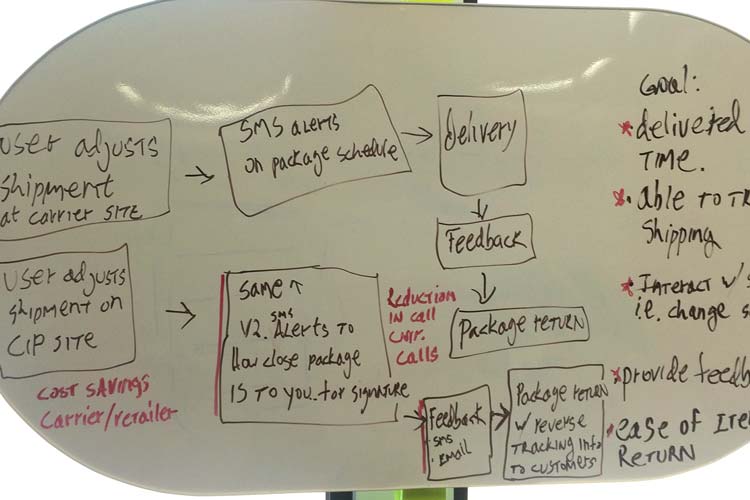 user adjusts
shipment
at carrier site
SMS alerts
on package schedule
delivery
Feedback
Package return
user adjusts
shipment on
CIP site
cost savings
carrier/retailer
same ↑
sms
V2. Alerts to
How close package
is to you. for signature
Reduction
in call
cntr.
calls
Feedback
sms
. email
Package return
w/ reverse
tracking info
to customers
Goal:
* delivered
Time.
* able to
Shipping
* Interact w/
i.e. change
* provide
* ease of
Return